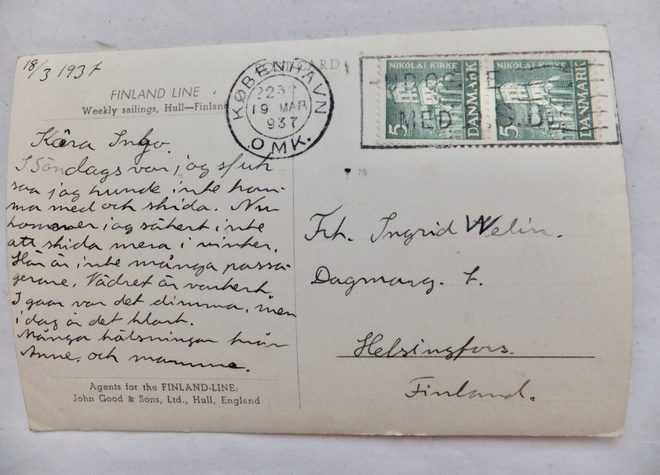 18/3 1937
FINLAND LINE
Weekly sailings, Hull—Finland
CARD
KØBENHAVN
19 MAR
937
OMK.
NIKOLAI KIRKE
5
DANMARK
NIKOLAI KIRKE
5
DANMARK
MED
Kära Ingo.
I Söndags var jag sjuk
saa jag kunde inte kom-
ma med och skida. Nu
kommer jag säkert inte
att skida mera i vinter.
Här är inte många passa-
gerare. Vädret är vackert
I gaar var det dimma, men
i dag är det klart.
Många hälsningar från
Anne. och mamma.
Frk. Ingrid Welin.
Dagmarg.
Helsingfors.
Finland.
Agents for the FINLAND-LINE:
John Good & Sons, Ltd., Hull, England